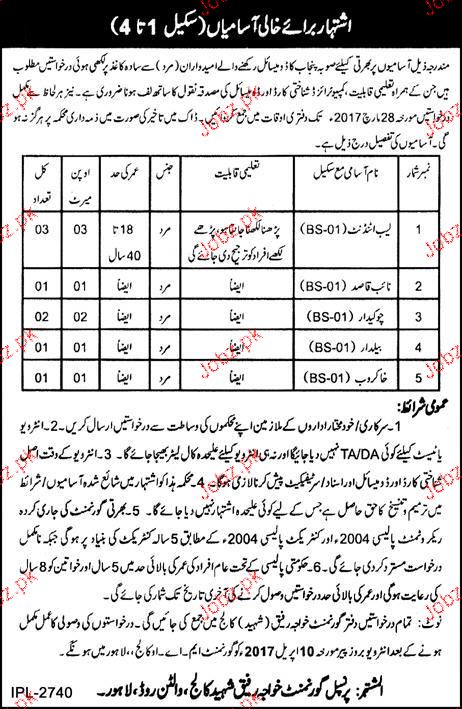 اشتہار برائے خالی آسامیاں (سکیل 1 تا 4)
مندرجہ ذیل آسامیوں پر بھرتی کیلئے صوبہ پنجاب کا ڈومیسائل رکھنے والے امیدواران (مرد) سے سادہ کاغذ پر لکھی ہوئی درخواستیں مطلوب
ہیں جن کے ہمراہ تعلیمی قابلیت، کمپیوٹرائزڈ شناختی کارڈ اور ڈومیسائل کی مصدقہ نقول کا ساتھ لف ہونا ضروری ہے۔ نیز ہر لحاظ سے مکمل
درخواستیں مورخہ 28 مارچ 2017ء تک دفتری اوقات میں جمع کروائیں۔ ڈاک میں تاخیر کی صورت میں ذمہ داری محکمہ پر ہرگز نہ ہو
گی۔ آسامیوں کی تفصیل درج ذیل ہے۔
نمبر شمار نام آسامی مع سکیل تعلیمی قابلیت جنس عمر کی حد اوپن میرٹ کل تعداد
1 لیب اٹنڈنٹ (BS-01) پڑھنا لکھنا جانتا ہو، پڑھے لکھے افراد کو ترجیح دی جائے گی مرد 18 تا 40 سال 03 03
2 نائب قاصد (BS-01) ایضاً مرد ایضاً 01 01
3 چوکیدار (BS-01) ایضاً مرد ایضاً 02 02
4 بیلدار (BS-01) ایضاً مرد ایضاً 01 01
5 خاکروب (BS-01) ایضاً مرد ایضاً 01 01
عمومی شرائط:
1۔ سرکاری/خود مختار اداروں کے ملازمین اپنے محکموں کی وساطت سے درخواستیں ارسال کریں۔ 2۔ انٹرویو
یا ٹیسٹ کیلئے کوئی TA/DA نہیں دیا جائیگا اور نہ ہی انٹرویو کیلئے علیحدہ کال لیٹر بھیجا جائے گا۔ 3۔ انٹرویو کے وقت اصل
شناختی کارڈ اور ڈومیسائل اور اسناد/سرٹیفکیٹ پیش کرنا لازمی ہوگا۔ 4۔ محکمہ ہذا کو اشتہار میں شائع شدہ آسامیوں/شرائط
میں ترمیم و تنسیخ کا حق حاصل ہے جس کے لیے کوئی علیحدہ اشتہار نہیں دیا جائے گا۔ 5۔ بھرتی گورنمنٹ کی جاری کردہ
ریکروٹمنٹ پالیسی 2004ء اور کنٹریکٹ پالیسی 2004ء کے مطابق 5 سالہ کنٹریکٹ کی بنیاد پر ہوگی جبکہ نامکمل
درخواست مسترد کر دی جائے گی۔ 6۔ حکومتی پالیسی کے تحت عام افراد کی عمر کی بالائی حد میں 5 سال اور خواتین کو 8 سال
کی رعایت ہوگی اور عمر کی بالائی حد درخواستیں وصول کرنے کی آخری تاریخ تک شمار کی جائے گی۔
نوٹ: تمام درخواستیں دفتر گورنمنٹ خواجہ رفیق (شہید) کالج میں جمع کی جائیں گی۔ درخواستوں کی وصولی کا عمل مکمل
ہونے کے بعد انٹرویو بروز پیر مورخہ 10 اپریل 2017ء کو گورنمنٹ ایم۔ اے۔ او کالج، لاہور میں ہونگے۔
المشتہر: پرنسپل گورنمنٹ خواجہ رفیق شہید کالج، والٹن روڈ، لاہور۔
IPL-2740
Jobz.pk